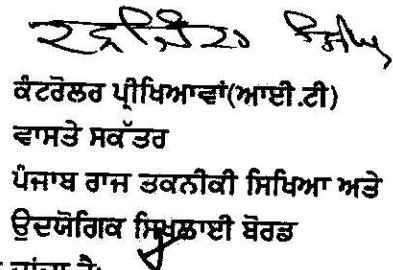 ਕੰਟਰੋਲਰ ਪ੍ਰੀਖਿਆਵਾਂ(ਆਈ.ਟੀ)
ਵਾਸਤੇ ਸਕੱਤਰ
ਪੰਜਾਬ ਰਾਜ ਤਕਨੀਕੀ ਸਿਖਿਆ ਅਤੇ
ਉਦਯੋਗਿਕ ਸਿਖਲਾਈ ਬੋਰਡ
ਜਾਂਦਾ ਹੈ: